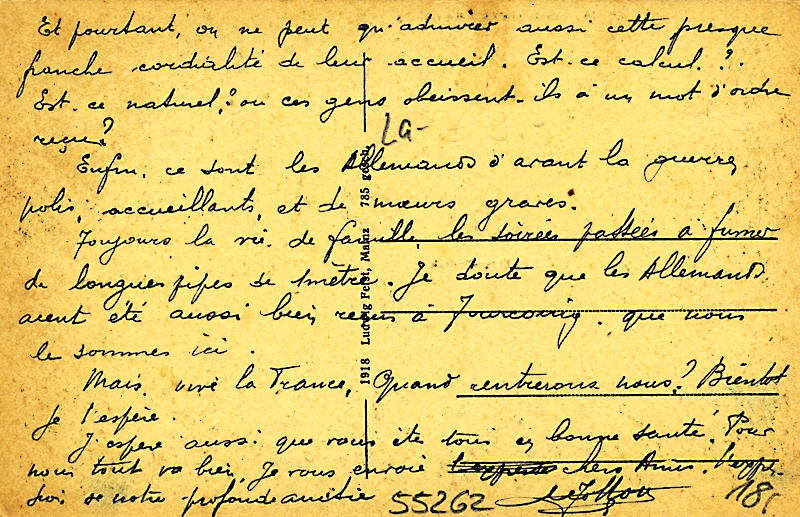 Et pourtant, on ne peut qu'admirer aussi cette presque
franche cordialité de leur accueil. Est-ce calcul?
Est-ce naturel? ou ces gens obéissent-ils à un mot d'ordre
reçu?
La-
Enfin, ce sont les Allemands d'avant la guerre,
polis, accueillants, et de mœurs graves.
Toujours la vie de famille, les soirées passées à fumer
de longues pipes de 1 mètre. Je doute que les Allemands
aient été aussi bien reçus à Tourcoing que nous
le sommes ici.
Mais vive la France, Quand rentrerons nous? Bientôt
je l'espère.
J'espère aussi que vous êtes tous en bonne santé. Pour
nous tout va bien, Je vous envoie chers Amis, l'expres-
sion de notre profonde amitié
55262
18
1918 Ludwig Feist, Mainz 785 gesch.